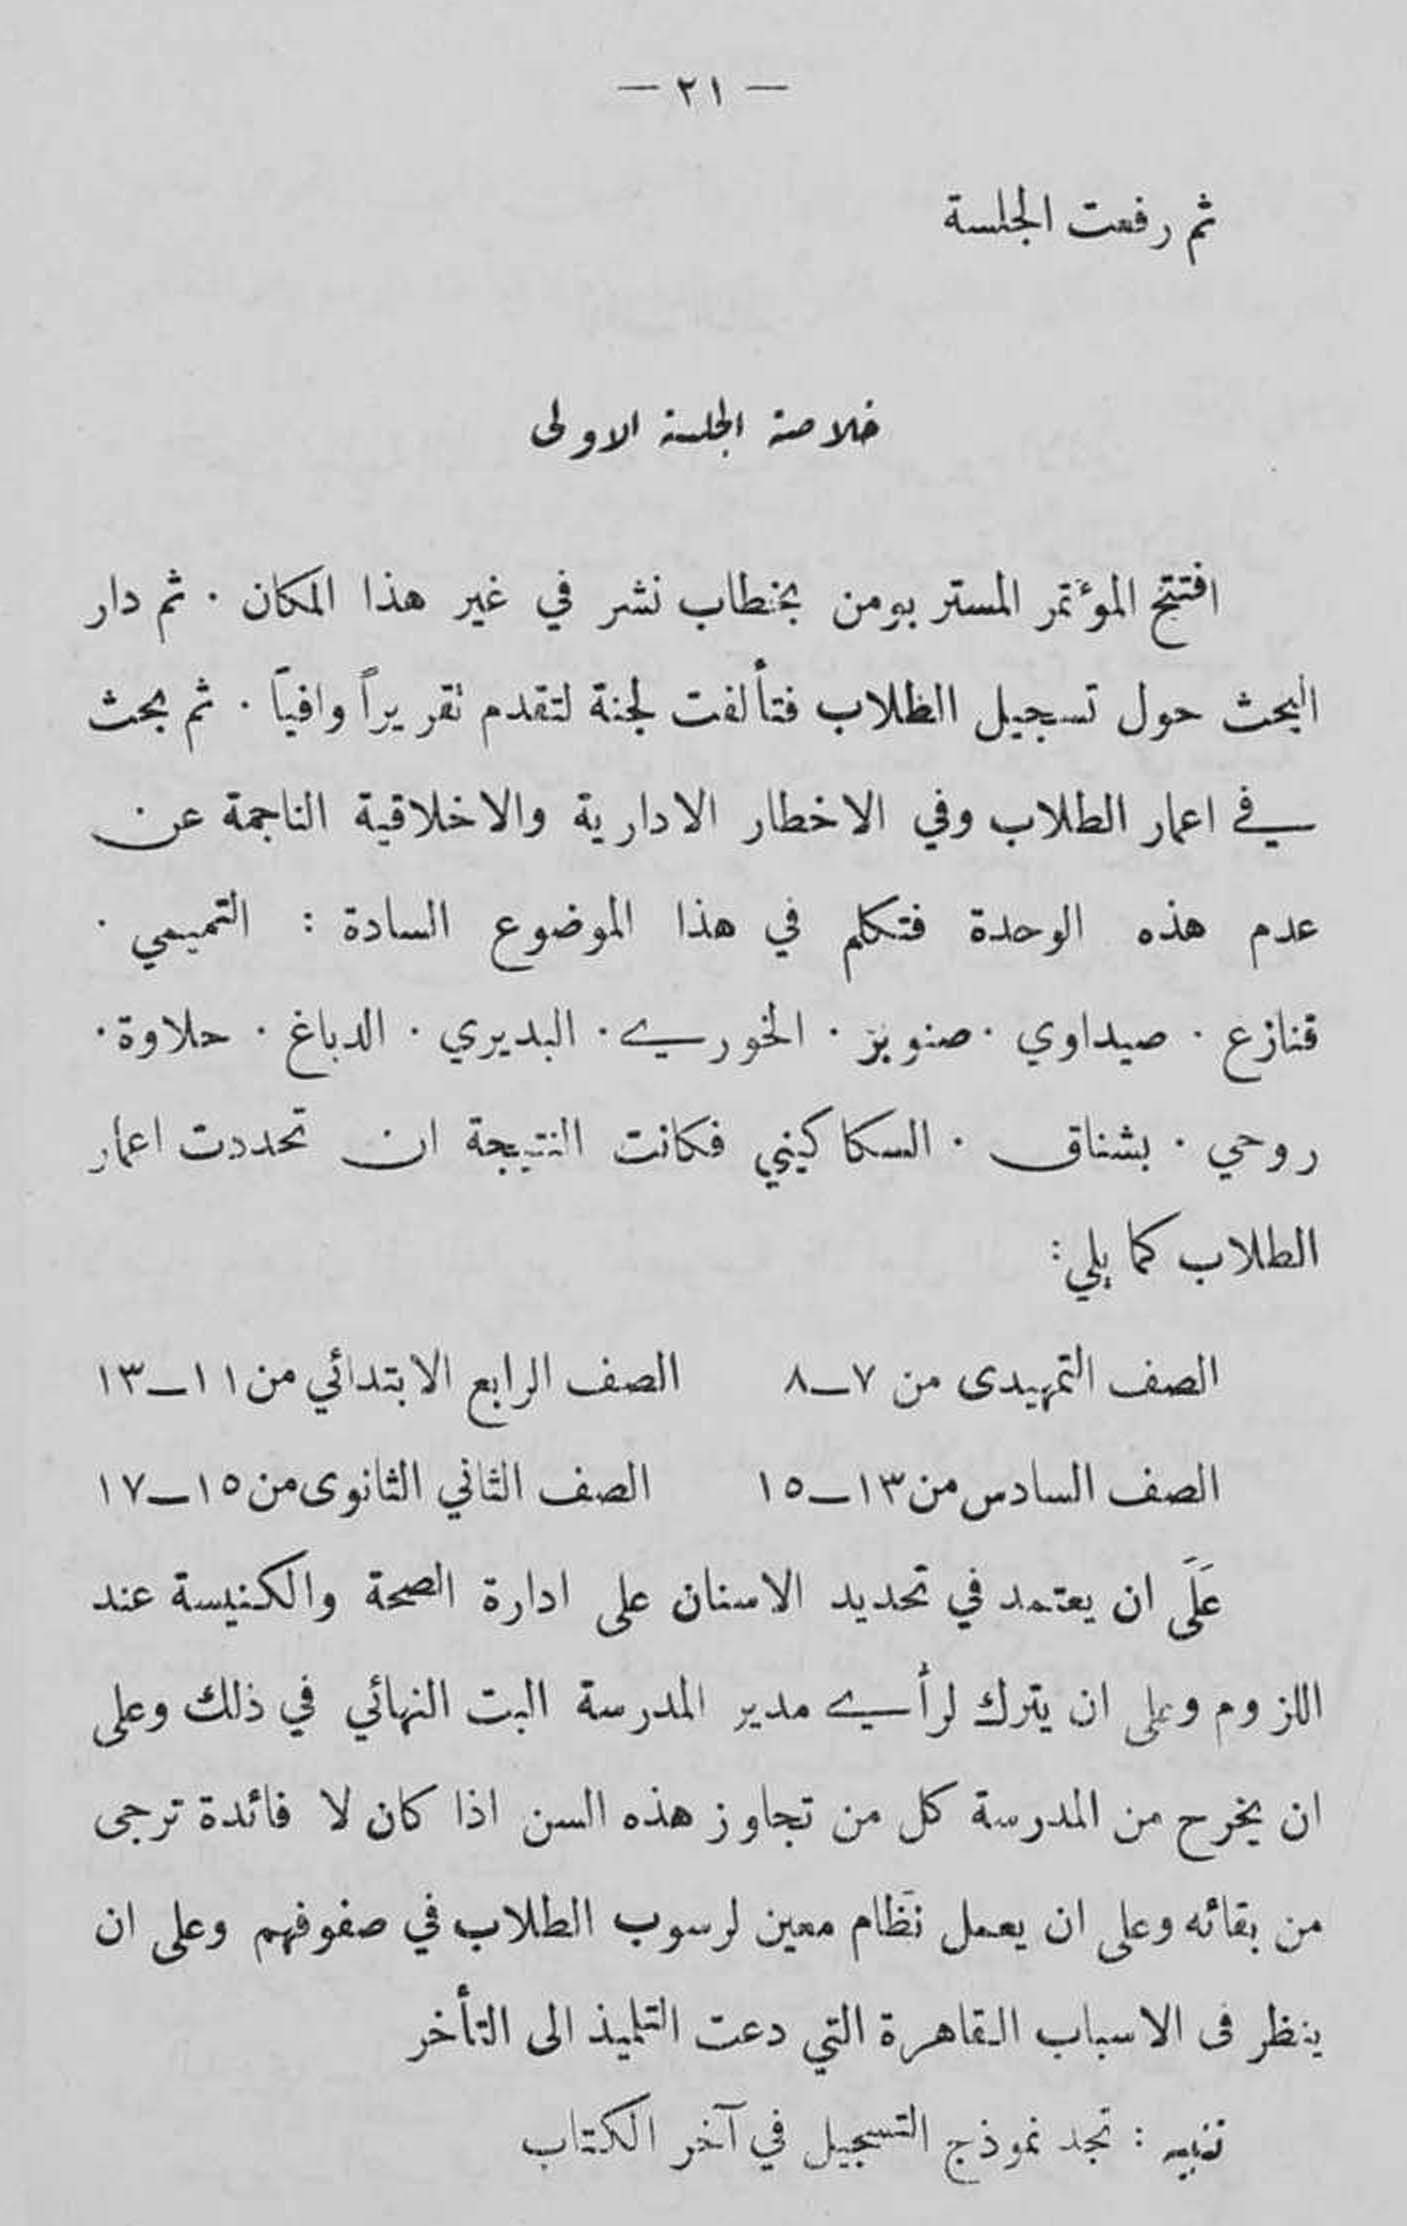 — ٢١ —
ثم رفعت الجلسة
خلاصة الجلسة الاولى
افتتح المؤتمر المستر بومن بخطاب نشر في غير هذا المكان . ثم دار
البحث حول تسجيل الطلاب فتألفت لجنة لتقدم تقريراً وافياً . ثم بحث
في اعمار الطلاب وفي الاخطار الادارية والاخلاقية الناجمة عن
عدم هذه الوحدة فتكلم في هذا الموضوع السادة : التميمي .
قنازع . صيداوي . صنوبر . الخوري . البديري . الدباغ . حلاوة .
روحي . بشناق . السكاكيني فكانت النتيجة ان تحددت اعمار
الطلاب كما يلي :
الصف التمهيدى من ٧—٨ الصف الرابع الابتدائي من ١١—١٣
الصف السادس من ١٣—١٥ الصف الثاني الثانوى من ١٥—١٧
عَلَى ان يعتمد في تحديد الاسنان على ادارة الصحة والكنيسة عند
اللزوم وعلى ان يترك لرأي مدير المدرسة البت النهائي في ذلك وعلى
ان يخرج من المدرسة كل من تجاوز هذه السن اذا كان لا فائدة ترجى
من بقائه وعلى ان يعمل نظام معين لرسوب الطلاب في صفوفهم وعلى ان
ينظر فى الاسباب القاهرة التي دعت التلميذ الى التأخر
تنبيه : تجد نموذج التسجيل في آخر الكتاب